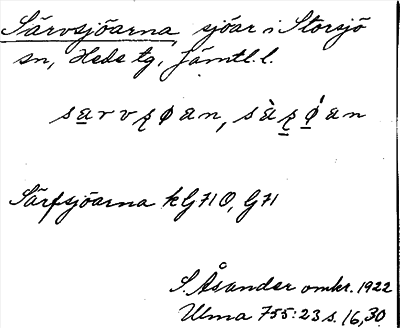 Särvsjöarna, sjöar i Storsjö
sn, Hede tg, Jämtl. l.
Särfsjöarna kG71O, G71
S. Åsander omkr. 1922
Ulma 755:23 s. 16, 30